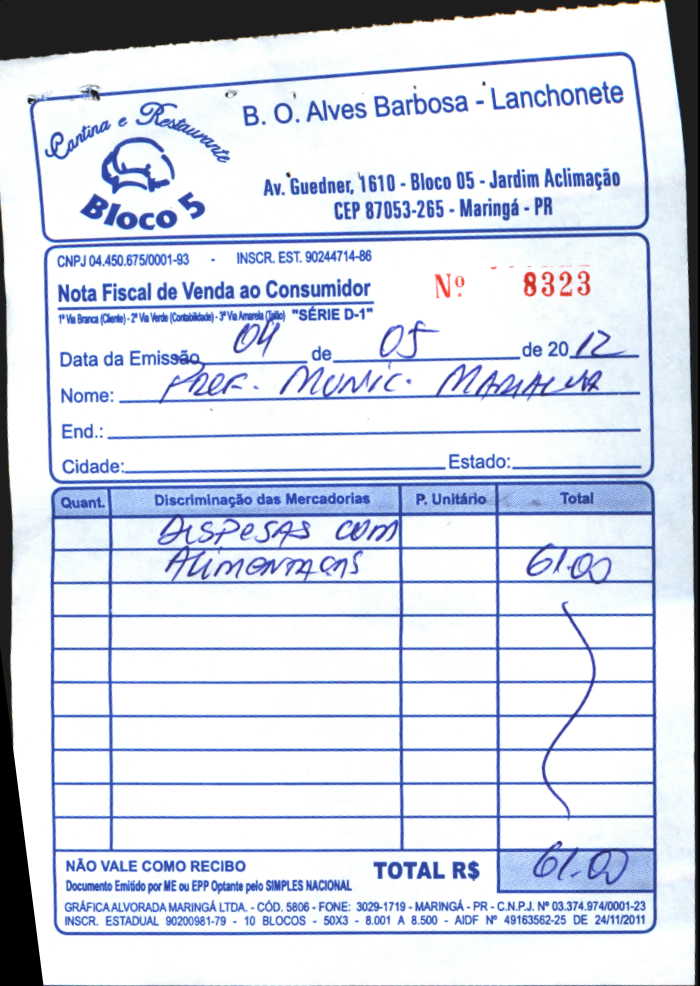 Cantina e Restaurante
Bloco 5
B. O. Alves Barbosa - Lanchonete
Av. Guedner, 1610 - Bloco 05 - Jardim Aclimação
CEP 87053-265 - Maringá - PR
CNPJ 04.450.675/0001-93 - INSCR. EST. 90244714-86
Nota Fiscal de Venda ao Consumidor Nº 8323
1ª Via Branca (Cliente) - 2ª Via Verde (Contabilidade) - 3ª Via Amarela (Talão) "SÉRIE D-1"
Data da Emissão 04 de 05 de 2012
Nome: PREF. MUNIC. MARIALVA
End.:
Cidade: Estado:
Quant. Discriminação das Mercadorias P. Unitário Total
DISPESAS COM
ALIMENTAÇAS 61.00
NÃO VALE COMO RECIBO
Documento Emitido por ME ou EPP Optante pelo SIMPLES NACIONAL
TOTAL R$ 61.00
GRÁFICA ALVORADA MARINGÁ LTDA. - CÓD. 5806 - FONE: 3029-1719 - MARINGÁ - PR - C.N.P.J. Nº 03.374.974/0001-23
INSCR. ESTADUAL 90200981-79 - 10 BLOCOS - 50X3 - 8.001 A 8.500 - AIDF Nº 49163562-25 DE 24/11/2011